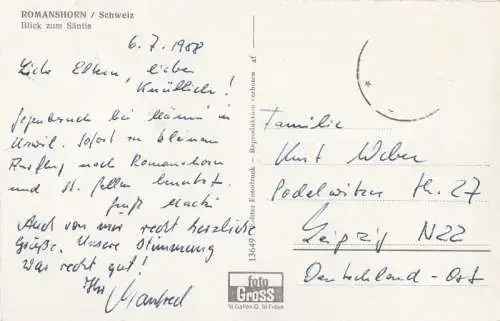 ROMANSHORN / Schweiz
Blick zum Säntis
6.7.1968
Liebe Eltern, lieber
Knüllich!
bei in
Uwil. Sofort zu kleinem
Ausflug nach Romanshorn
und St. Gallen benutzt.
Gruß Macki
Auch von mir recht herzliche
Grüße. Unsere Stimmung
war recht gut!
Ihr Manfred
13649 Echter Fotodruck - Reproduktion verboten af
foto
GROSS
St.Gallen
Familie
Kurt Weber
Podelwitzer Str. 27
Leipzig N22
Deutschland-Ost